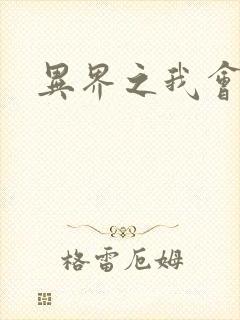 異界之我會
格雷厄姆